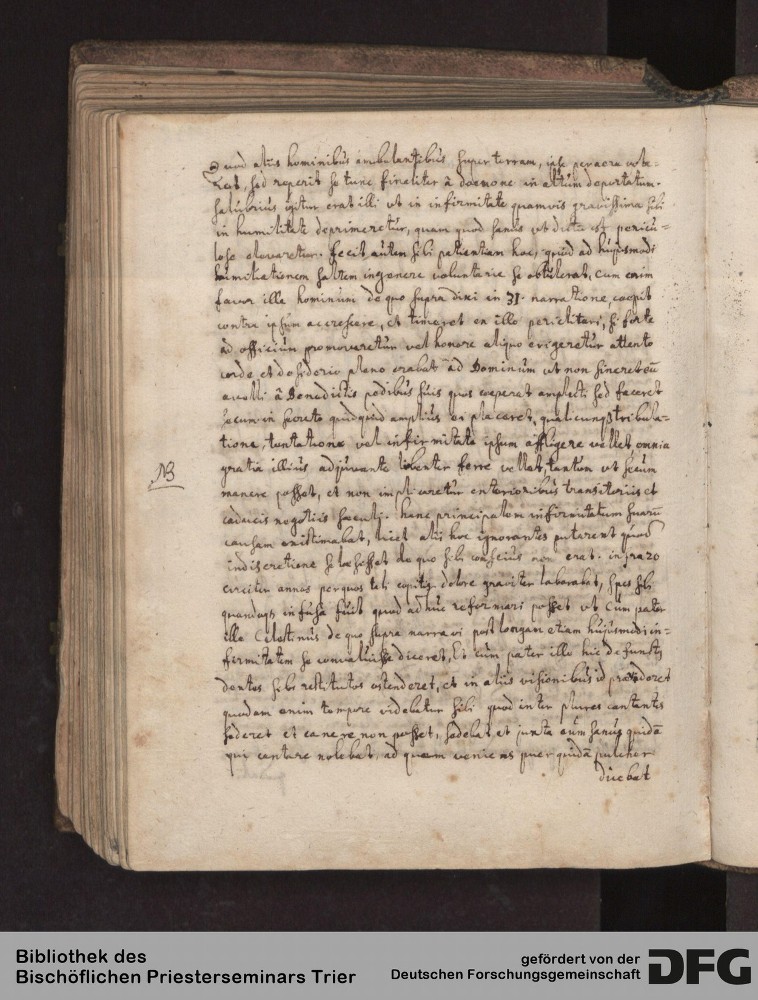 Quod aliis hominibus ambulantibus super terram, ipse per aera vola-
ret, sed reperit se tunc finaliter à daemone in altum deportatum.
salubrius igitur erat illi ut in infirmitate quamvis gravissima sibi
in humilitate deprimeretur, quam quod sanus ut dictum est pericu-
lose elevaretur. fecit autem sibi patientiam hoc, quod ad hujusmodi
humiliationem saltem in genere voluntarie se obtulerat, cum enim
favor ille hominum de quo supra dixi in 31. narratione, coepit
contra ipsum accrescere, et timeret ex illo periclitari, si forte
ad officium promoveretur vel honore aliquo erigeretur attento
corde et desiderio pleno orabat ad Dominum ut non sineret eum
avelli à Benedictis pedibus suis quos coeperat amplecti sed faceret
secum in secreto quidquid amplius ei placeret, qualicunque tribula-
tione, tentatione vel infirmitate ipsum affligere vellet, omnia
gratia illius adjuvante libenter ferre vellet, tantum ut secum
NB
manere posset, et non implicaretur exterioribus transitoriis et
caducis negotiis saeculi. hanc principalem infirmitatum suarum
causam existimabat, licet alii hoc ignorantes putarent quod
indiscretione se laesisset de quo sibi conscius non erat. infra 20
circiter annos per quos tali capitis dolore graviter laborabat, spes sibi
quandoque infusa fuit quod adhuc reformari posset ut cum pater
ille Celestinus de quo supra narravi post longam etiam hujusmodi in-
firmitatem se convaluisse diceret, Et cum pater ille hic defunctus
dentes sibi restitutos ostenderet, et in aliis visionibus id
quodam enim tempore videbatur sibi quod inter plures cantantes
sederet et canere non posset, sedebat et juxta eum sanus quidam
qui cantare nolebat, ad quem veniens puer quidam pulcher
dicebat
Bibliothek des
Bischöflichen Priesterseminars Trier
gefördert von der
Deutschen Forschungsgemeinschaft
DFG